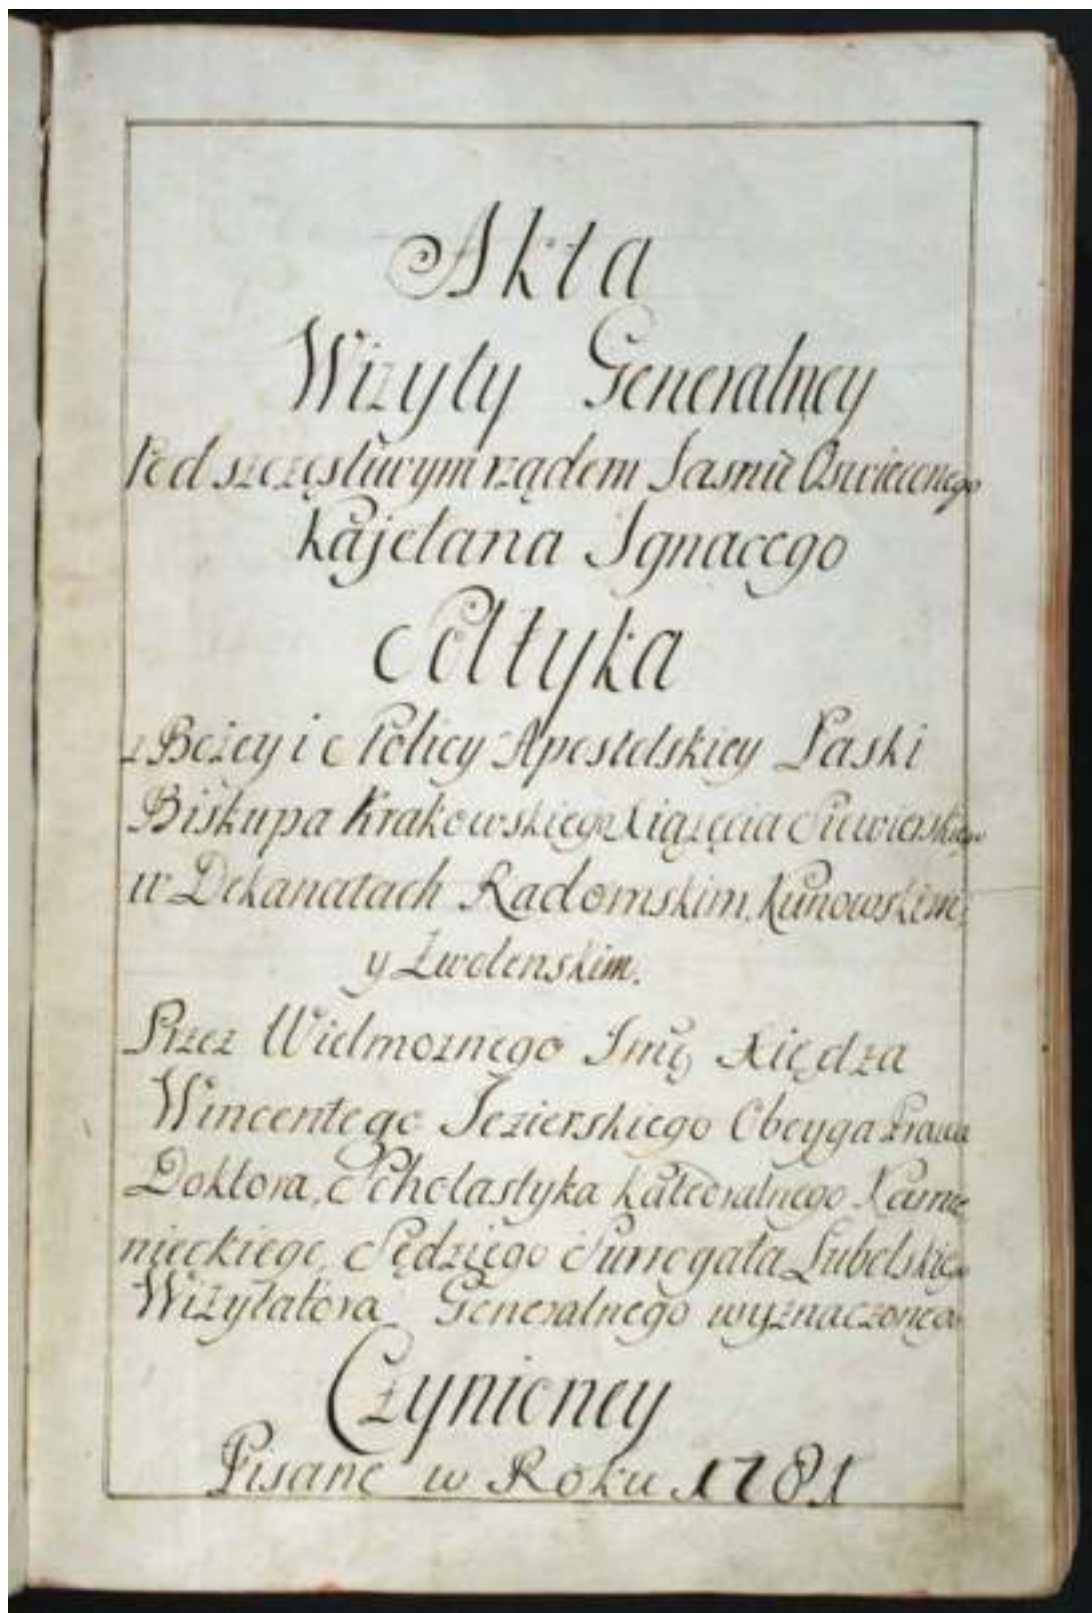 Akta
Wizyty Generalney
Pod szczęsliwym rządem Jasnie Oswieconego
Kajetana Ignacego
Sołtyka
z Bozey i Stolicy Apostolskiey Łaski
Biskupa Krakowskiego Xiążęcia Siewierskiego
w Dekanatach Radomskim, Kunowskim,
y Zwolenskim.
Przez Wielmoznego Jmę Xiędza
Wincentego Jezierskiego Oboyga Prawa
Doktora, Scholastyka Katedralnego Kamie
nieckiego, Sędziego Surrogata Lubelskiego
Wizytatora Generalnego wyznaczonego
Czynioney
Pisane w Roku 1781